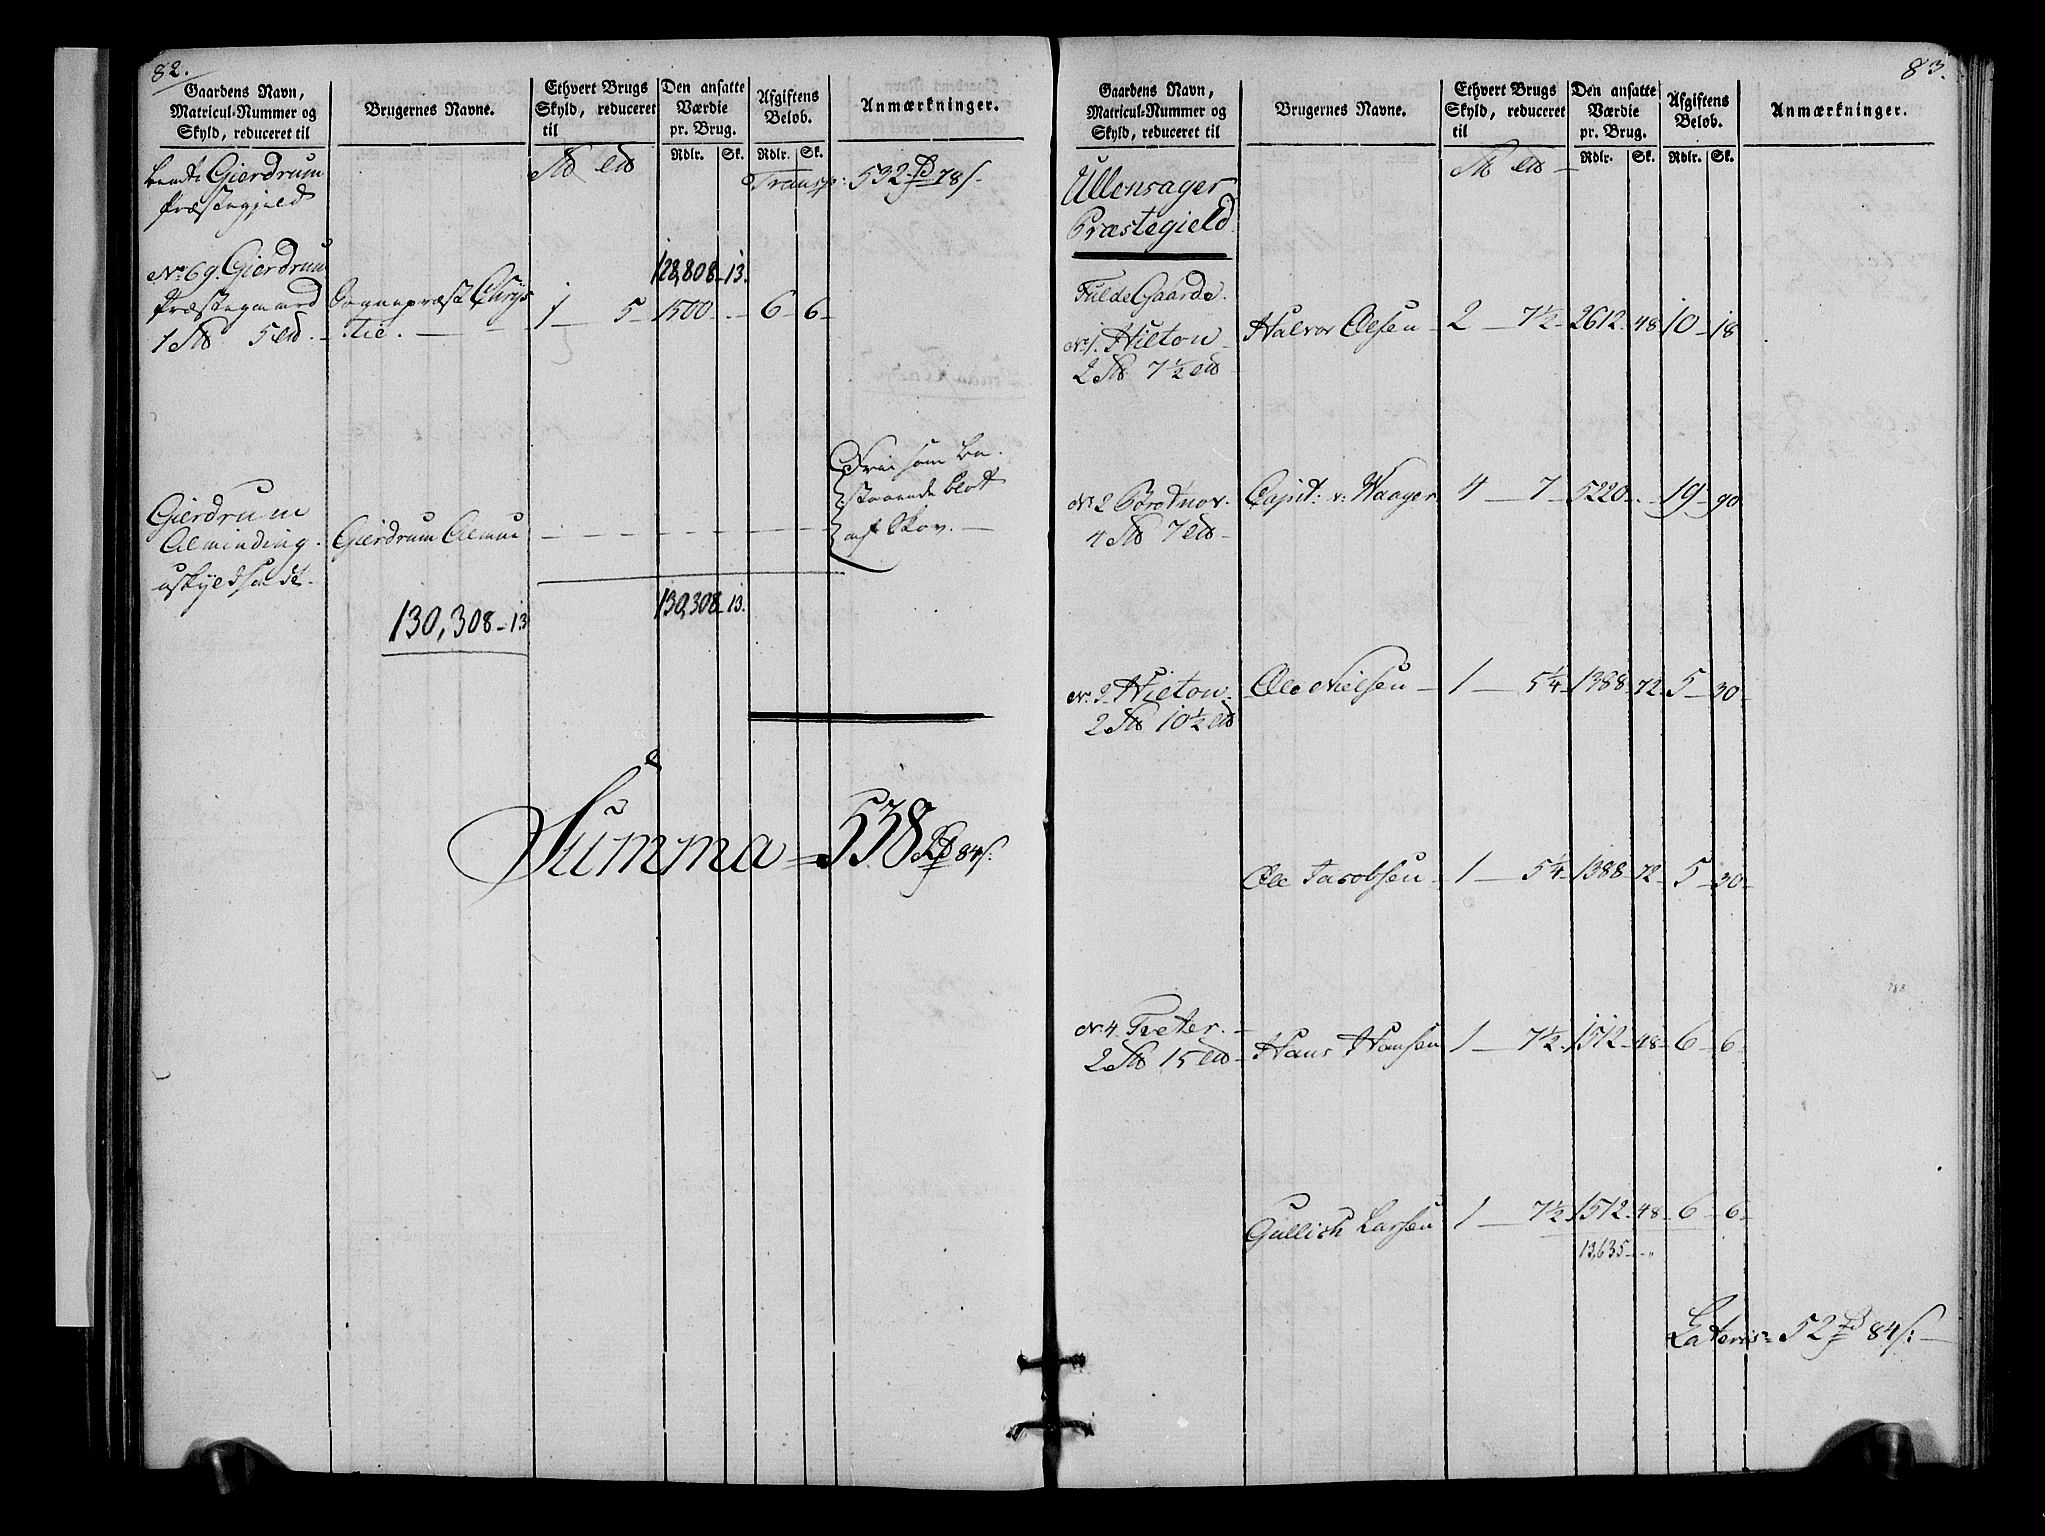 82.
Gaardens Navn,
Matricul-Nummer og
Skyld, reduceret til
Brugernes Navne.
Ethvert Brugs
Skyld, reduceret
til
Den ansatte
Værdie
pr. Brug.
Rdlr. Sk.
Afgiftens
Beløb.
Rdlr. Sk.
Anmærkninger.
Gierdrum
Præstegjeld
Transp: 532 78 s.
128,808 - 13.
No 69. Gierdrum
Præstegaard
Sognepræst Chrys
1 — 5 — 1500 - . - 6 - 6 -
tie.
Gierdrum
Alminding.
uskyldsat.
Gierdrum Almue
Frie som be-
staaende blot
af Skov.
130,308 - 13.
130,308 - 13
Summa = 538 84 s:
83.
Gaardens Navn,
Matricul-Nummer og
Skyld, reduceret til
Brugernes Navne.
Ethvert Brugs
Skyld, reduceret
til
Den ansatte
Værdie
pr. Brug.
Rdlr. Sk.
Afgiftens
Beløb.
Rdlr. Sk.
Anmærkninger.
Ullensager
Præstegield
Fulde Gaarde.
No 1. Hilton
Halvor Olsen - 2 — 7 1/2 - 2612 - 48 - 10 - 18
No 2
Capit: v: Waager 4 — 7 — 5220 - . - 19 - 90
No 3 Hilton
Ole Nielsen - 1 — 5 1/4 - 1388 - 72 - 5 - 30 -
Ole Jacobsen - 1 — 5 1/4 - 1388 - 72 - 5 - 30 -
No 4. Tveter.
Hans Hansen 1 — 7 1/2 - 1512 - 48 - 6 - 6 -
Gullich Larsen 1 — 7 1/2 - 1512 - 48 - 6 - 6 -
13,635 - . - "
Lateris = 52 84 s: